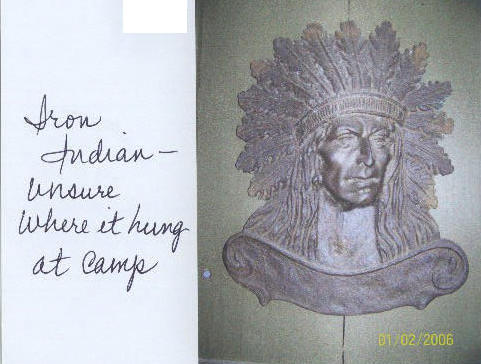 Iron
Indian –
Unsure
Where it hung
at Camp
01/02/2006